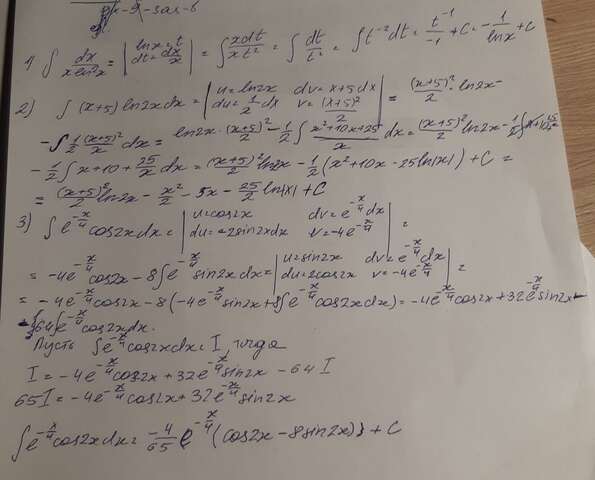 1) ∫ dx/(x ln²x) = | lnx = t dt = dx/x | = ∫ xdt/(x t²) = ∫ dt/t² = ∫ t⁻² dt = t⁻¹/-1 + C = - 1/lnx + C
2) ∫ (x+5) ln2x dx = | u = ln2x dv = x+5 dx du = 1/x dx v = (x+5)²/2 | = (x+5)²/2 · ln2x -
- ∫ 1/2 (x+5)²/x dx = ln2x · (x+5)²/2 - 1/2 ∫ x²+10x+25/x dx = (x+5)²/2 ln2x - 1/2
- 1/2 ∫ x + 10 + 25/x dx = (x+5)²/2 ln2x - 1/2 (x² + 10x - 25ln|x|) + C =
= (x+5)²/2 ln2x - x²/2 - 5x - 25/2 ln|x| + C
3) ∫ e^(-x/4) cos2x dx = | u = cos2x dv = e^(-x/4) dx du = -2sin2x dx v = -4e^(-x/4) | =
= -4e^(-x/4) cos2x - 8 ∫ e^(-x/4) sin2x dx = | u = sin2x dv = e^(-x/4) dx du = 2cos2x v = -4e^(-x/4) | =
= -4e^(-x/4) cos2x - 8 (-4e^(-x/4) sin2x + 8 ∫ e^(-x/4) cos2x dx) = -4e^(-x/4) cos2x + 32e^(-x/4) sin2x -
- 64 ∫ e^(-x/4) cos2x dx.
Пусть ∫ e^(-x/4) cos2x dx = I, тогда
I = -4e^(-x/4) cos2x + 32e^(-x/4) sin2x - 64 I
65 I = -4e^(-x/4) cos2x + 32e^(-x/4) sin2x
∫ e^(-x/4) cos2x dx = -4/65 e^(-x/4) (cos2x - 8sin2x) + C